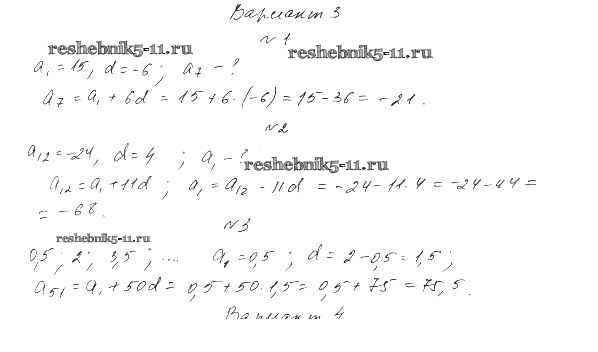 Вариант 3
№1
reshebnik5-11.ru
reshebnik5-11.ru
a₁ = 15, d = -6 ; a₇ - ?
a₇ = a₁ + 6d = 15 + 6·(-6) = 15 - 36 = -21.
№2
a₁₂ = -24, d = 4 ; a₁ - ?
reshebnik5-11.ru
a₁₂ = a₁ + 11d ; a₁ = a₁₂ - 11d = -24 - 11·4 = -24 - 44 =
= -68.
№3
reshebnik5-11.ru
0,5 ; 2 ; 3,5 ; .... a₁ = 0,5 ; d = 2 - 0,5 = 1,5 ;
a₅₁ = a₁ + 50d = 0,5 + 50·1,5 = 0,5 + 75 = 75,5.
Вариант 4